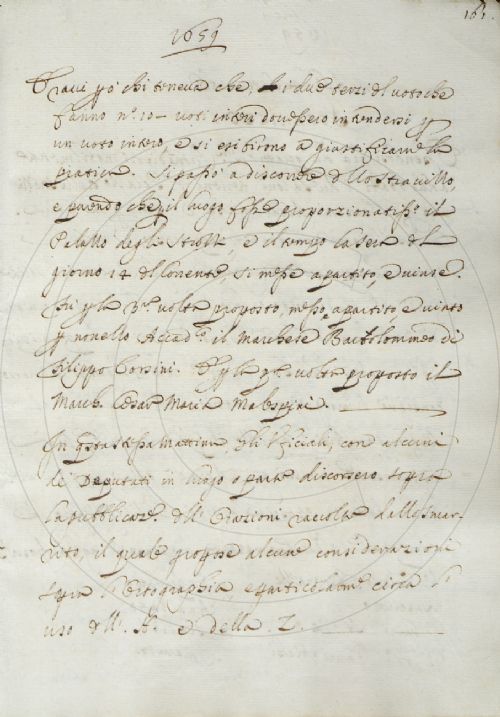 161.
1659
chi teneva che, i due terzi del voto che
fanno n.° 10 – voti interi dovessero intendersi p
un voto intero, e si esibirono a giustificarne la
pratica. Si passò a discorrere dello stravizzo,
e parendo che il luogo fosse proporzionatiss.° il
Palazzo degli Strozzi, e il tempo la sera del
giorno 14 del Corrente, si messe a partito, e vinse.
Fu p la 3.a volta proposto, messo a partito, e vinto
p novello Accad.co il Marchese Bartolommeo di
Filippo Corsini. E p la p.a volta proposto il
March. Cesar Maria Malespini.
In q.sta stessa Mattina, gli Ufiziali, con alcuni
de Deputati in luogo a parte discorsero sopra
la pubblicaz.e dell' Orazioni raccolte dallo Smar-
rito, il quale propose alcune considerazioni
sopra l' Ortographia, e particolarm.e circa l'
uso dell' H e della Z.